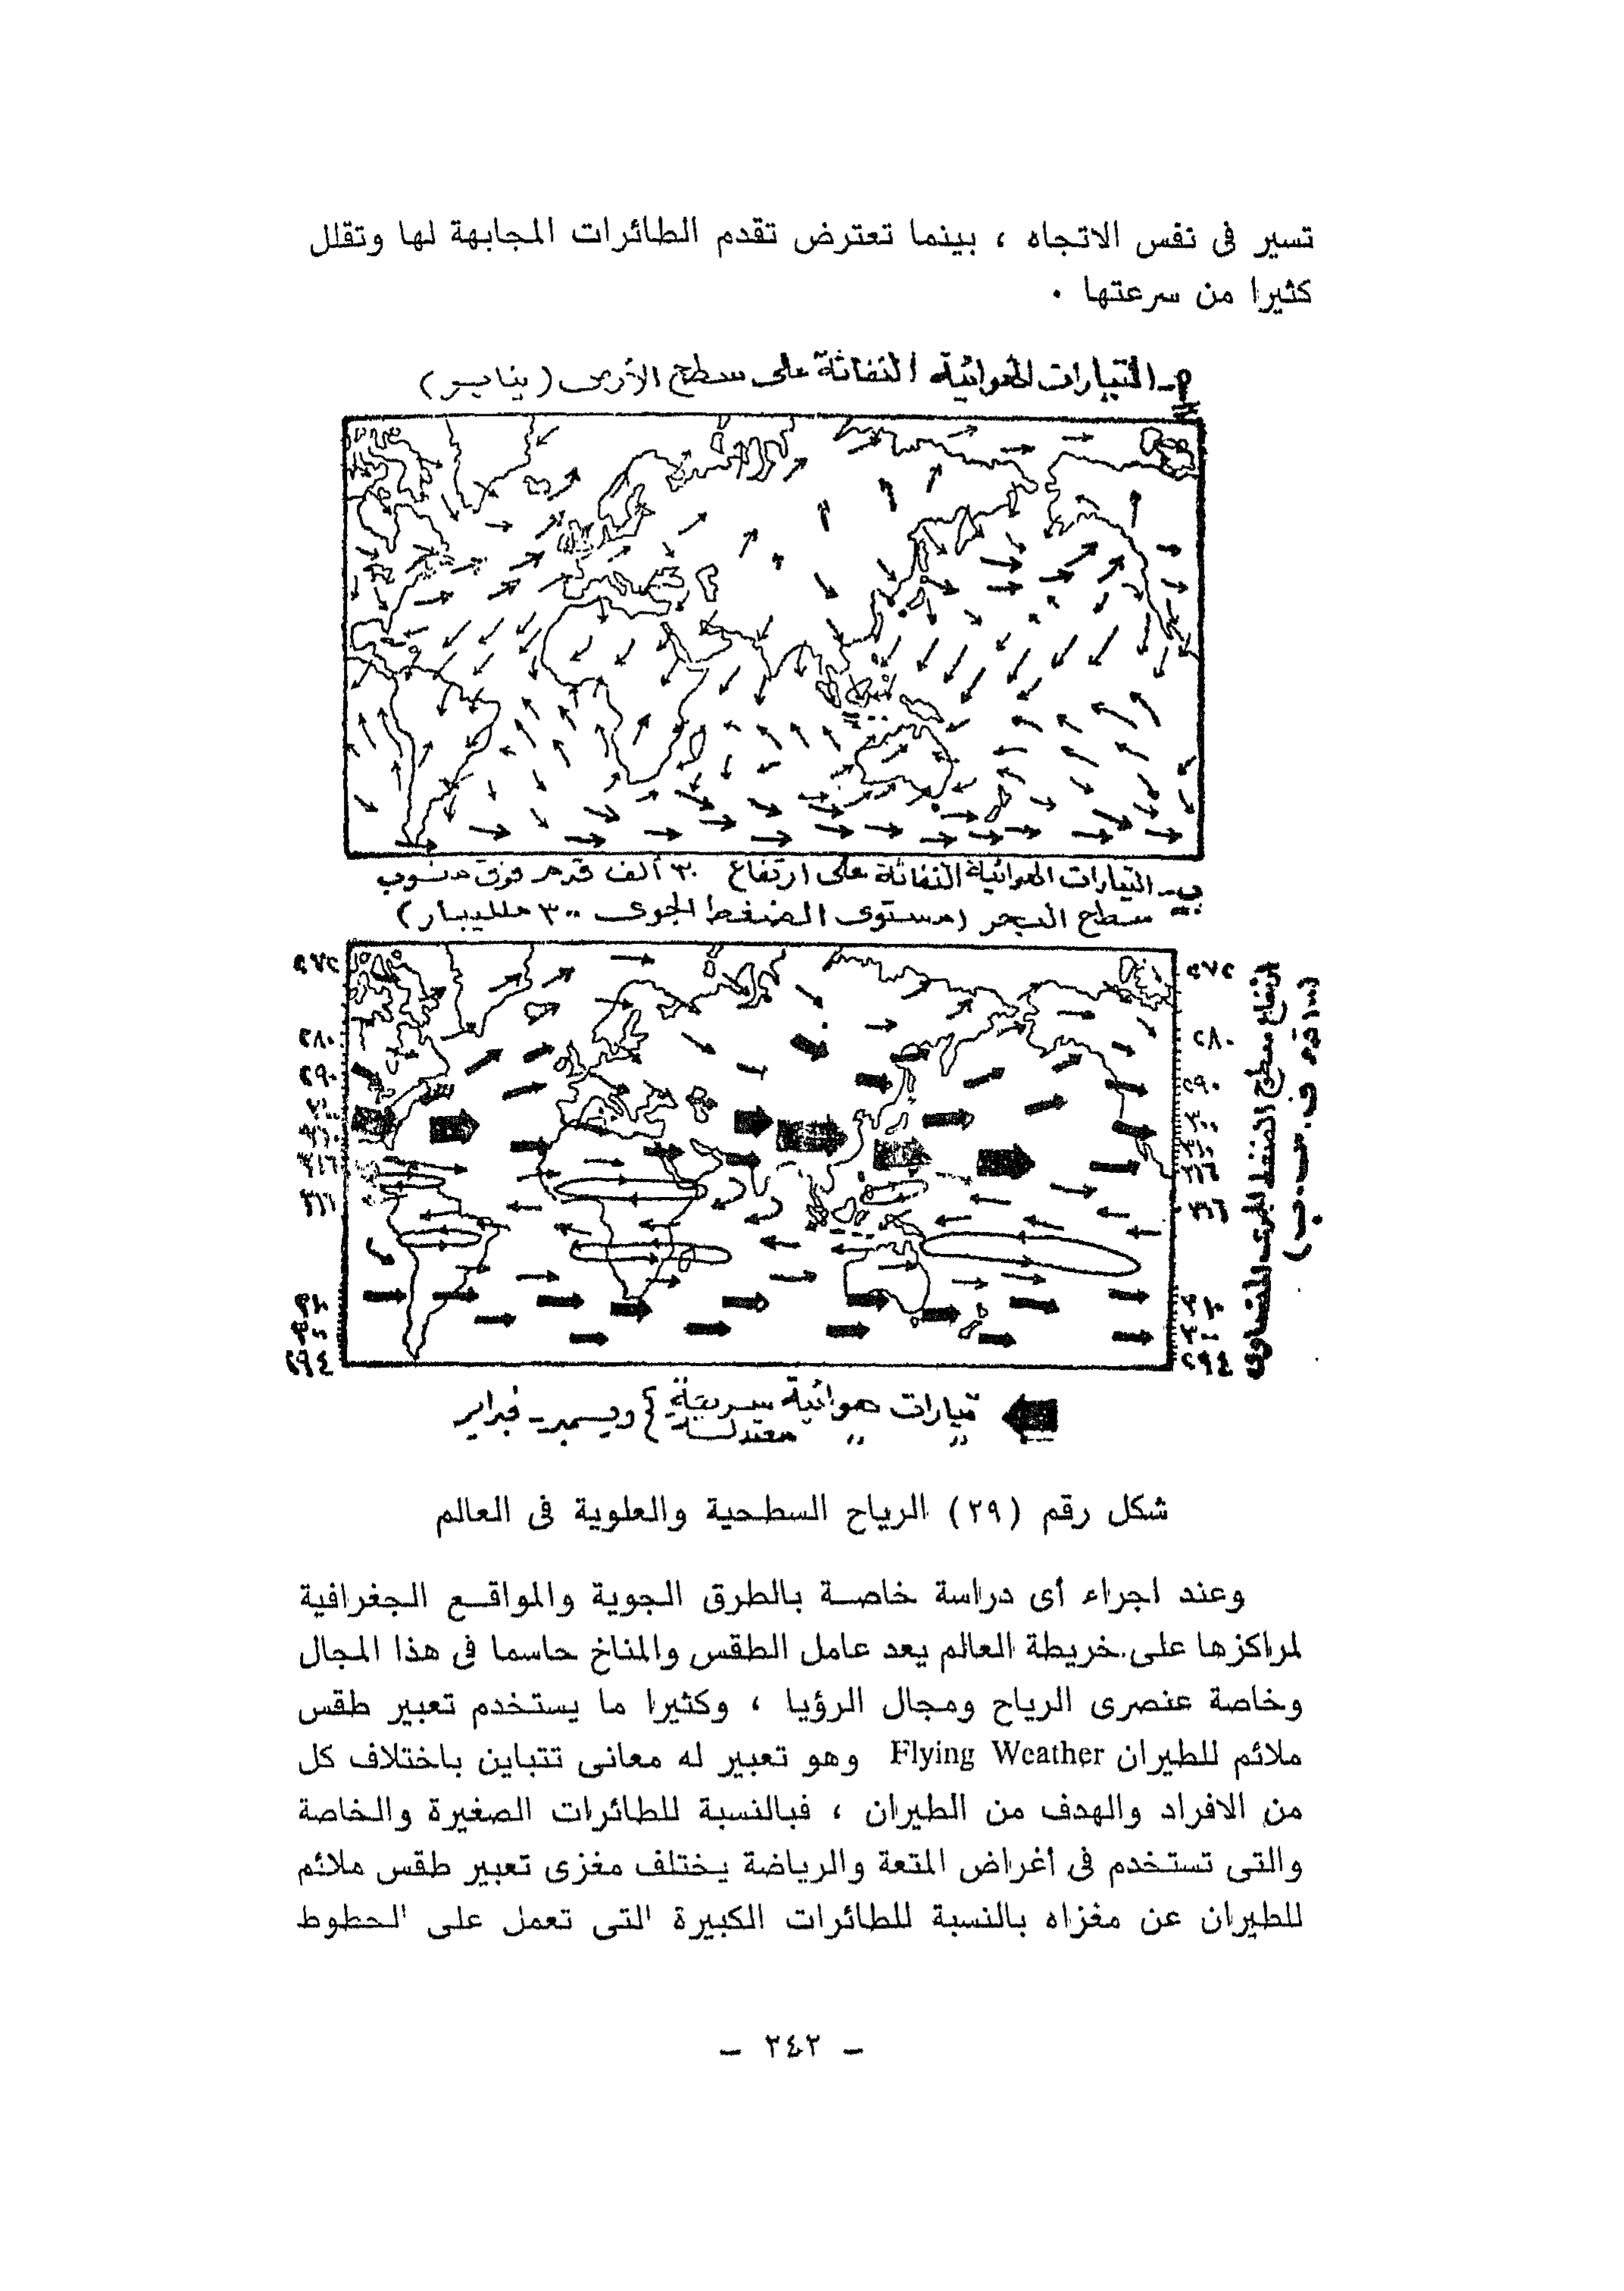 تسير فى نفس الاتجاه ، بينما تعترض تقدم الطائرات المجابهة لها وتقلل
كثيرا من سرعتها .
أ - التيارات الهوائية النفاثة على سطح الأرض (يناير)
ب - التيارات الهوائية النفاثة على ارتفاع ٣٠ ألف قدم فوق منسوب
سطح البحر (مستوى الضغط الجوى ٣٠٠ ملليبار)
٢٧٢
٢٨٠
٢٩٠
٣٠٠
٣١٠
٣١٦
٣١٦
٣١٠
٣٠٠
٢٩٤
٢٧٢
٢٨٠
٢٩٠
٣٠٠
٣١٠
٣١٦
٣١٦
٣١٠
٣٠٠
٢٩٤
ارتفاع سطح الضغط الجوى المتساوى
تيارات هوائية سريعة } ديسمبر - فبراير
" " معتدلة
شكل رقم (٢٩) الرياح السطحية والعلوية فى العالم
وعند اجراء أى دراسة خاصة بالطرق الجوية والمواقع الجغرافية
لمراكزها على خريطة العالم يعد عامل الطقس والمناخ حاسما فى هذا المجال
وخاصة عنصرى الرياح ومجال الرؤيا ، وكثيرا ما يستخدم تعبير طقس
ملائم للطيران Flying Weather وهو تعبير له معانى تتباين باختلاف كل
من الافراد والهدف من الطيران ، فبالنسبة للطائرات الصغيرة والخاصة
والتى تستخدم فى أغراض المتعة والرياضة يختلف مغزى تعبير طقس ملائم
للطيران عن مغزاه بالنسبة للطائرات الكبيرة التى تعمل على الخطوط
- ٢٤٢ -